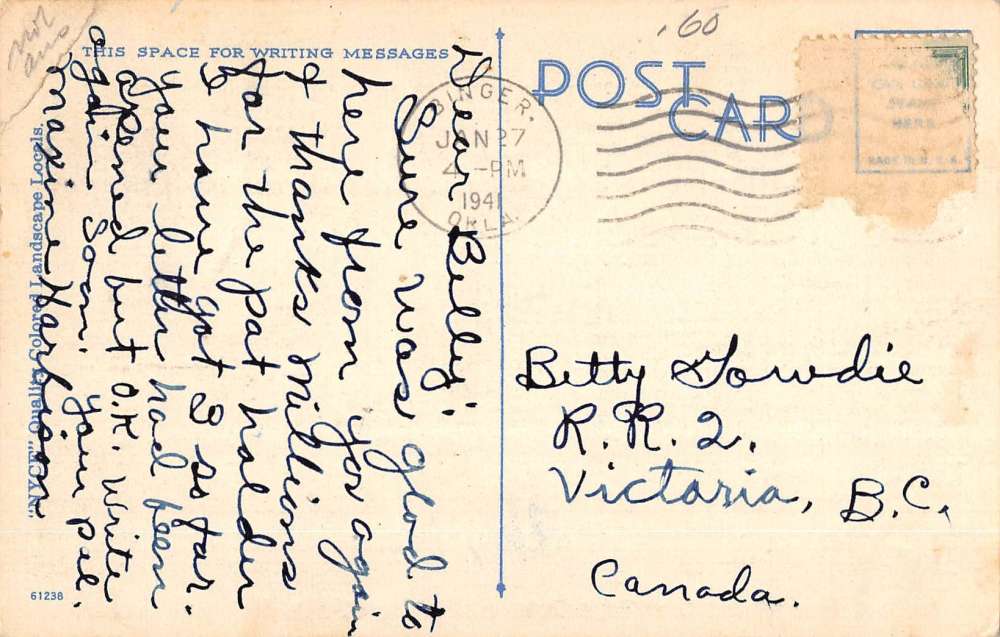 not
ans
THIS SPACE FOR WRITING MESSAGES
Dear Betty:
Sure was glad to
here from you again
& thanks millions
for the pot holder
I have got 3 so far.
your letter had been
opened but O.K. write
again soon. your pal.
Maxine Harbison
"NYCE" Quality Colored Landscape Locals.
61238
.60
POST CARD
BINGER,
JAN 27
4-PM
1941
OKLA.
STAMP
HERE
MADE IN U.S.A.
Betty Gowdie
R.R. 2.
Victoria, B.C.
Canada.